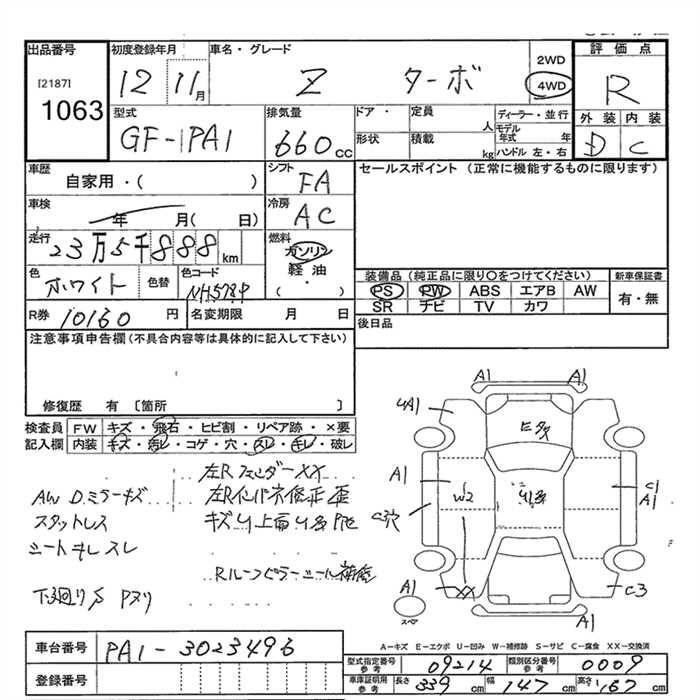 出品番号
[2187]
1063
初度登録年月
12 11月
車名・グレード
Z ターボ
2WD
4WD
評価点
R
外装 内装
D C
型式
GF-1PA1
排気量
660cc
ドア・形状
定員
人
積載
kg
ディーラー・並行
モデル年式 年
ハンドル 左・右
車歴
自家用・( )
シフト
FA
セールスポイント (正常に機能するものに限ります)
車検
年 月( 日)
冷房
AC
走行
23万5千888km
燃料
ガソリン
軽油
( ・ )
色
ホワイト
色替
色コード
NH578P
装備品 (純正品に限り〇をつけてください)
PS PW ABS エアB AW
SR ナビ TV カワ
新車保証書
有・無
R券 10160円
名変期限 月 日
後日品
注意事項申告欄(不具合内容等は具体的に記入して下さい)
修復歴 有 〔箇所 〕
検査員記入欄
FW キズ・飛石・ヒビ割・リペア跡・×要
内装 キズ・汚レ・コゲ・穴・スレ・キレ・破レ
左Rフェンダー XX
AW Dミラーキズ
スタットレス
シートキレ スレ
下廻りS Pヌリ
A1 A1
U4A1
A1
W2
C1
A1
XX
C3
A1
スペア
A1
A-キズ E-エクボ U-凹み W-補修跡 S-サビ C-腐食 XX-交換済
車台番号 PA1-3023496
登録番号
型式指定番号参考 09214
類別区分番号参考 0009
車庫証明用参考 長さ 339cm 幅 147cm 高さ 167cm